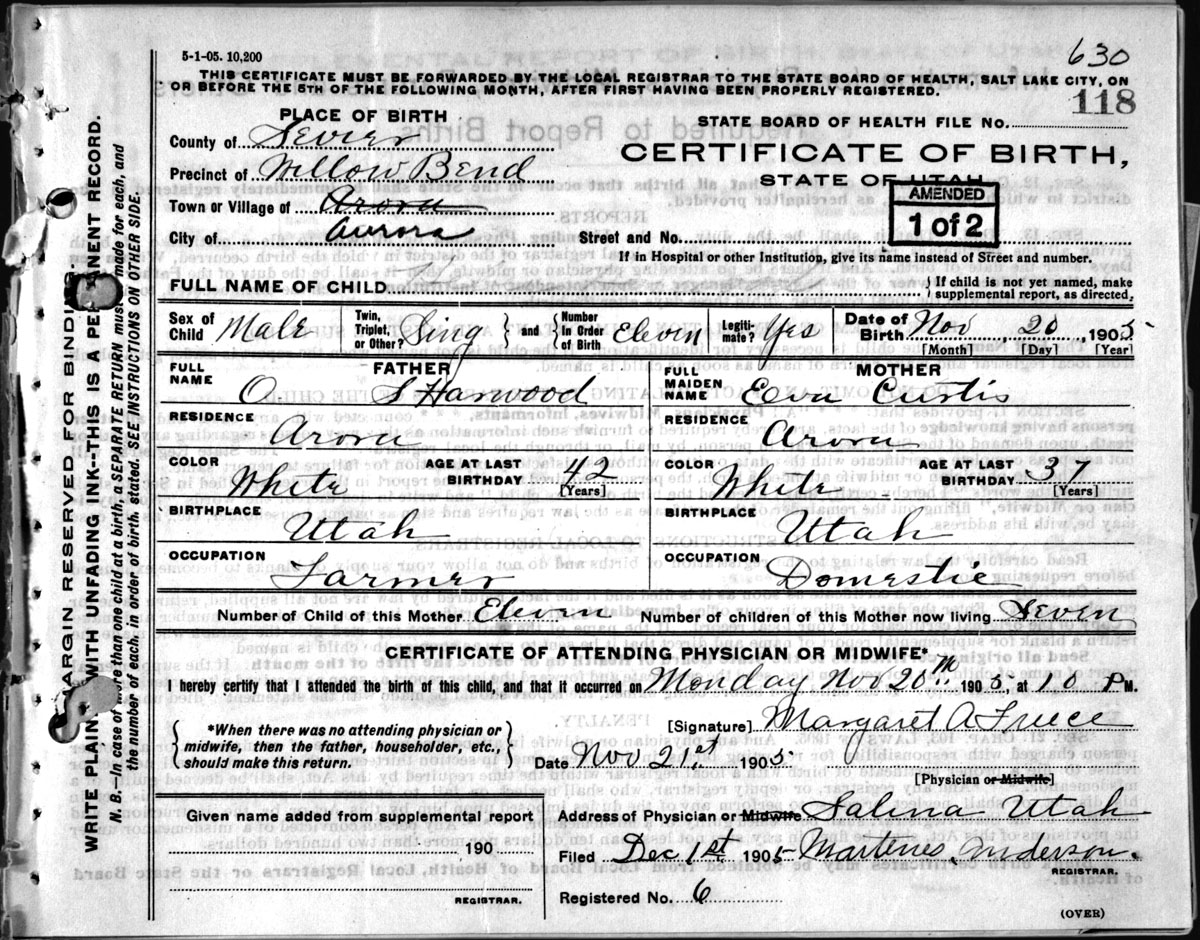 5-1-05. 10,200
630
THIS CERTIFICATE MUST BE FORWARDED BY THE LOCAL REGISTRAR TO THE STATE BOARD OF HEALTH, SALT LAKE CITY, ON
OR BEFORE THE 5TH OF THE FOLLOWING MONTH, AFTER FIRST HAVING BEEN PROPERLY REGISTERED.
118
PLACE OF BIRTH
STATE BOARD OF HEALTH FILE NO.
County of Sevier
CERTIFICATE OF BIRTH,
Precinct of Willow Bend
STATE OF UTAH
AMENDED
1 of 2
Town or Village of Arora
City of Aurora
Street and No.
If in Hospital or other Institution, give its name instead of Street and number.
FULL NAME OF CHILD
If child is not yet named, make
supplemental report, as directed.
Sex of Child Male
Twin, Triplet, or Other? Sing
and
Number In Order of Birth Elevin
Legiti-mate? Yes
Date of Birth Nov 20 1905
[Month] [Day] [Year]
FATHER
FULL NAME O S Harwood
MOTHER
FULL MAIDEN NAME Eva Curtis
RESIDENCE Arora
RESIDENCE Arora
COLOR White
AGE AT LAST BIRTHDAY 42
[Years]
COLOR White
AGE AT LAST BIRTHDAY 37
[Years]
BIRTHPLACE Utah
BIRTHPLACE Utah
OCCUPATION Farmer
OCCUPATION Domestic
Number of Child of this Mother Elevin
Number of children of this Mother now living Sevin
CERTIFICATE OF ATTENDING PHYSICIAN OR MIDWIFE*
I hereby certify that I attended the birth of this child, and that it occurred on Monday Nov 20 1905, at 10 P M.
*When there was no attending physician or
midwife, then the father, householder, etc.,
should make this return.
[Signature] Margaret A
Date Nov 21st 1905
[Physician or Midwife]
Given name added from supplemental report
190
REGISTRAR.
Address of Physician or Midwife Salina Utah
Filed Dec 1st 1905 Martines Anderson.
REGISTRAR.
Registered No. 6
(OVER)
MARGIN RESERVED FOR BINDING.
WRITE PLAINLY WITH UNFADING INK--THIS IS A PERMANENT RECORD.
N. B.—In case of more than one child at a birth, a SEPARATE RETURN must be made for each, and
the number of each, in order of birth, stated. SEE INSTRUCTIONS ON OTHER SIDE.